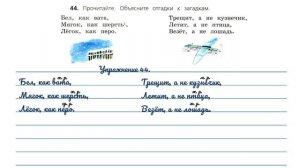 44. Прочитайте. Объясните отгадки к загадкам.
Бел, как вата,
Мягок, как шерсть,
Лёгок, как перо.
Трещит, а не кузнечик,
Летит, а не птица,
Везёт, а не лошадь.
Упражнение 44.
Бел, как вата,
Мягок, как шерсть,
Лёгок, как перо.
Трещит, а не кузнечик,
Летит, а не птица,
Везёт, а не лошадь.